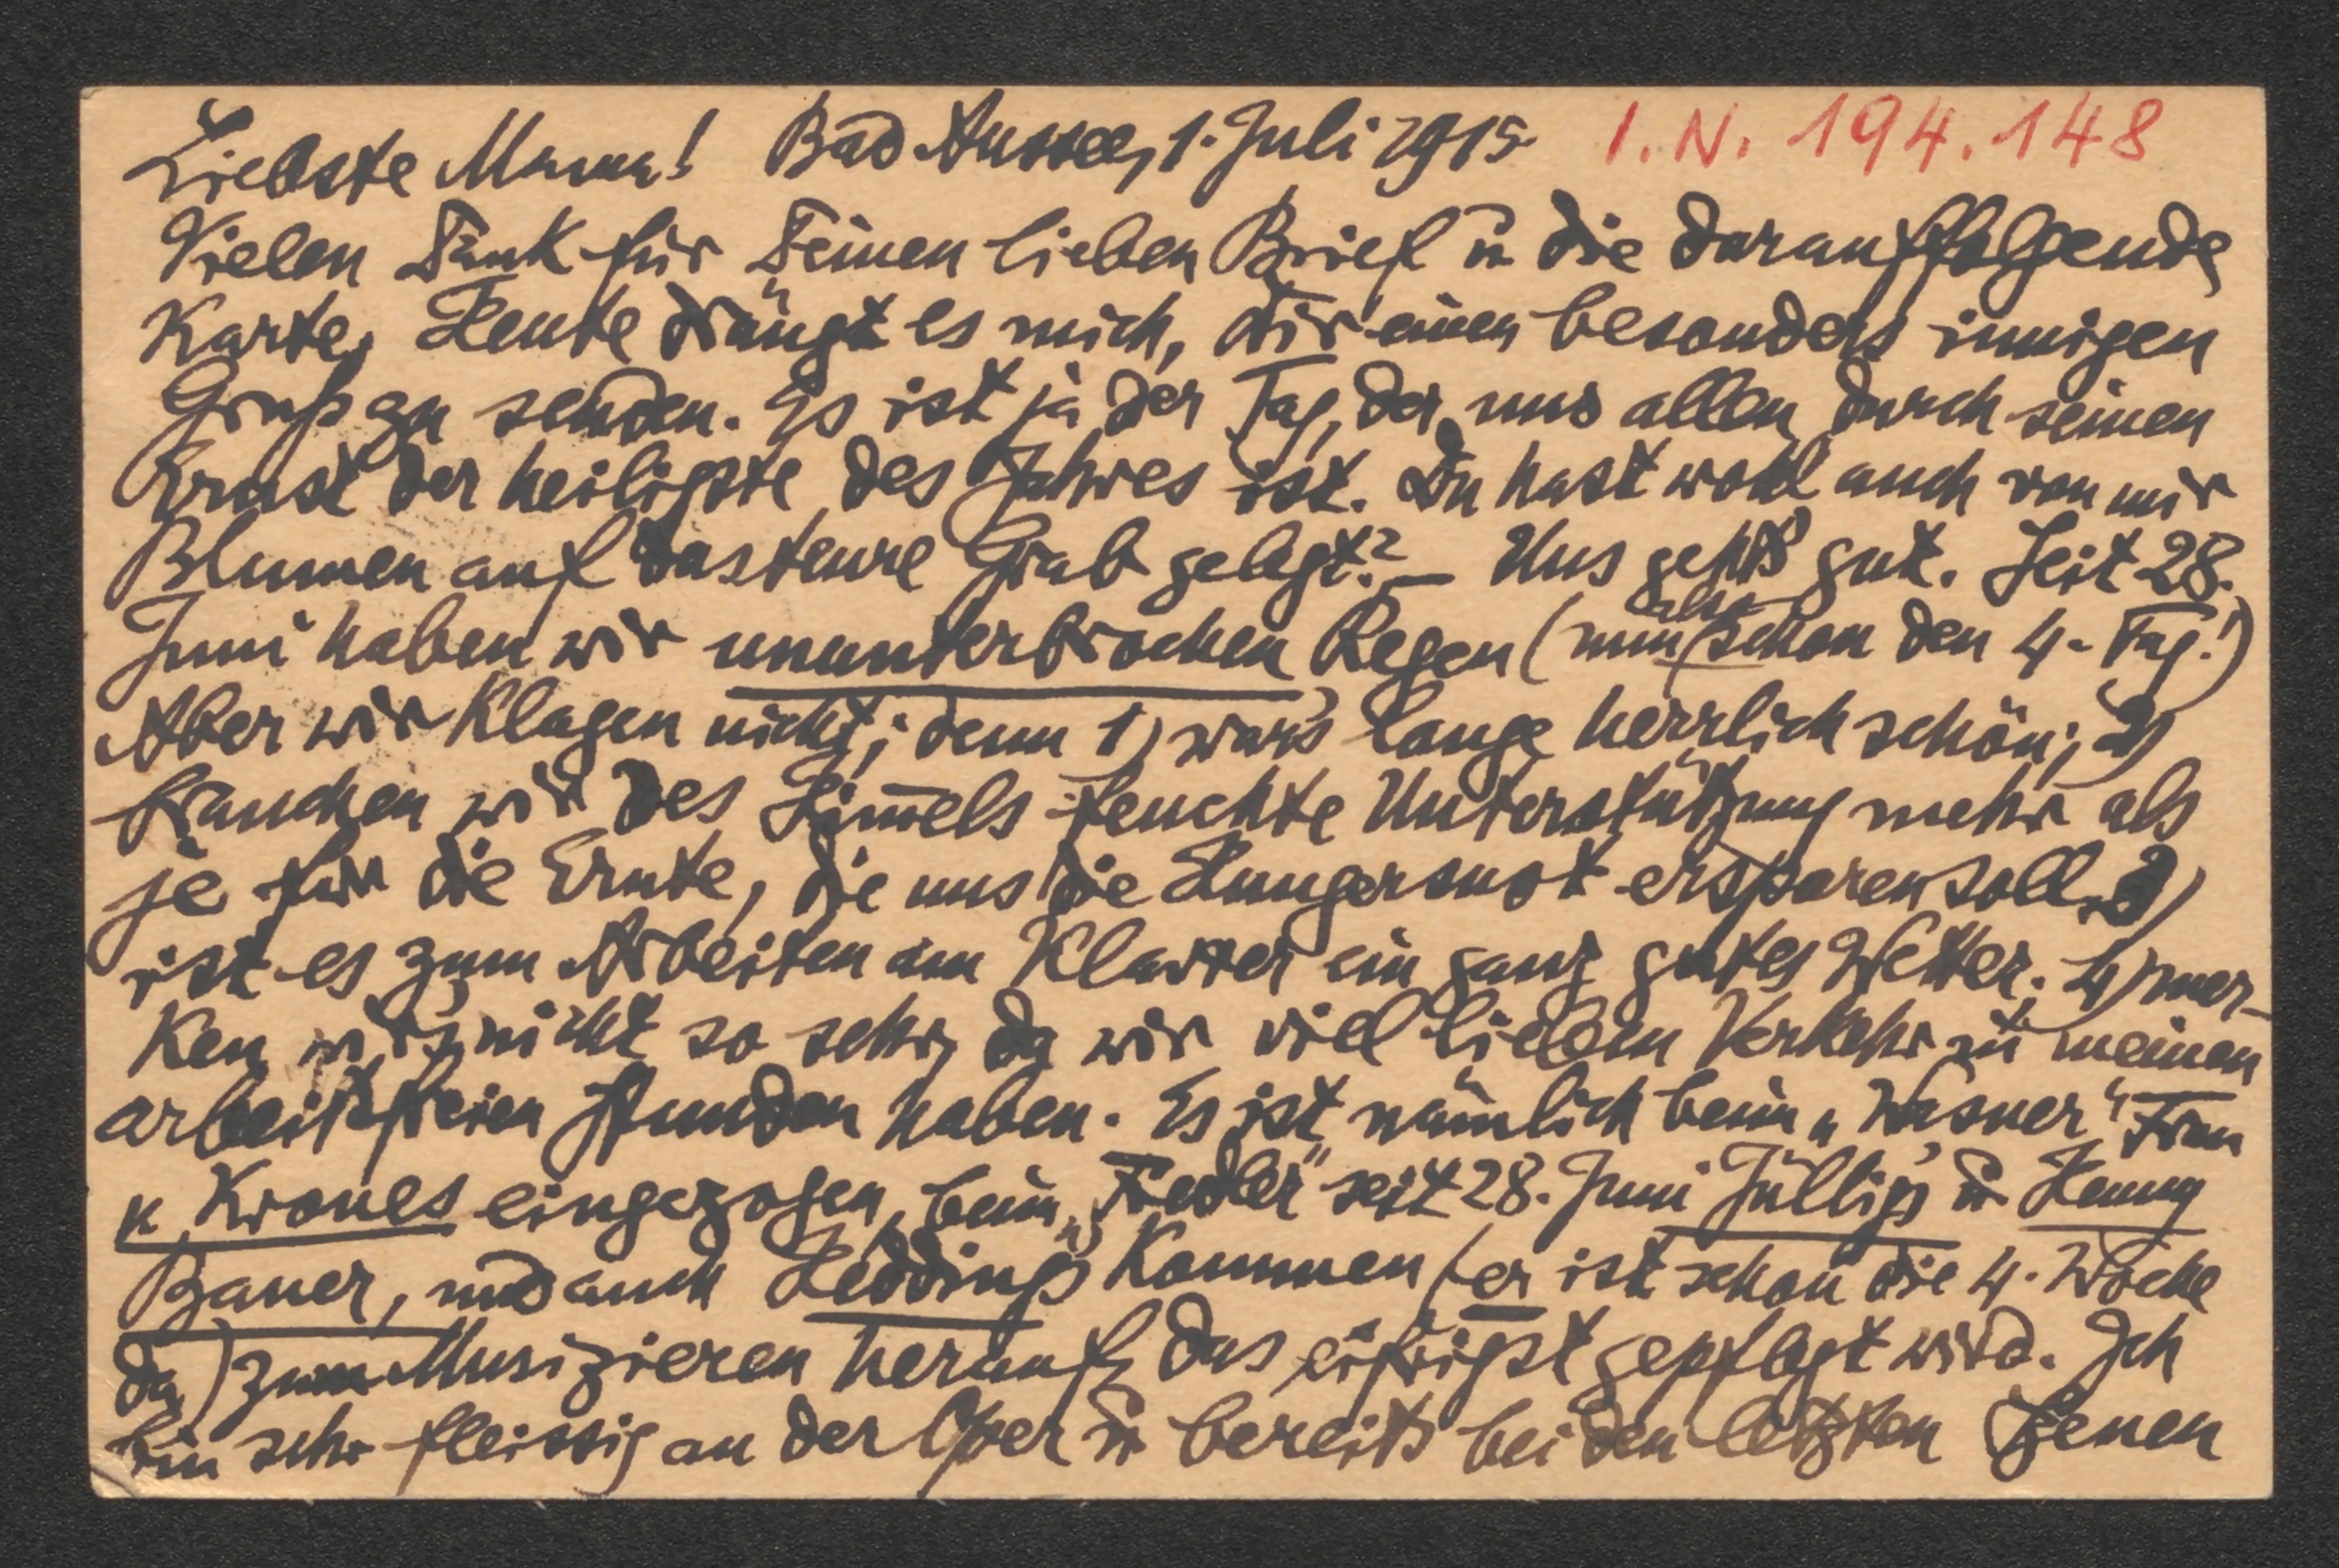 Liebste Mama! Bad Aussee, 1. Juli 1915. I.N. 194.148
Vielen Dank für Deinen lieben Brief u die darauffolgende
Karte. Heute drängt es mich, Dir einen besonders innigen
Gruß zu senden. Es ist ja der Tag, der uns allen durch seinen
Ernst der heiligste des Jahres ist. Du hast wohl auch von mir
Blumen auf das teure Grab gelegt? – Uns geht's gut. Seit 28.
Juni haben wir ununterbrochen Regen (nun also schon den 4. Tag!)
Aber wir klagen nicht; denn 1) war's lange herrlich schön; 2)
brauchen wir des Him̅els feuchte Unterstützung mehr als
je für die Ernte, die uns die Hungersnot ersparen soll. 3)
ist es zum Arbeiten am Klavier ein ganz gutes Wetter; 4) mer-
ken wir's nicht so sehr, da wir viel lieben Verkehr in meinen
arbeitsfreien Stunden haben. Es ist nämlich beim „Wasner" Frau
v. Krones eingezogen, beim „Fiedler" seit 28. Juni Jüllig's u Henny
Bauer, und auch Hedding's kommen (er ist schon die 4. Woche
da) zum Musizieren herauf, das eifrigst gepflegt wird. Ich
bin sehr fleissig an der Oper u bereits bei den letzten Szenen